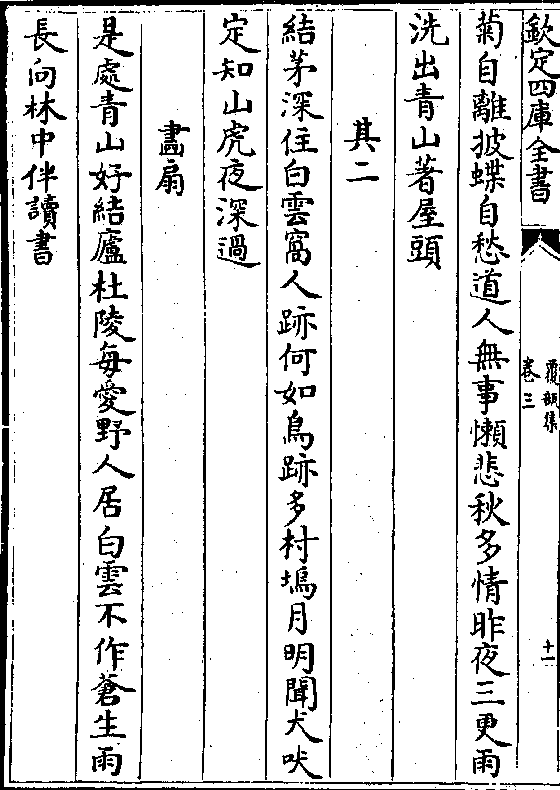 欽定四庫全書
覆瓿集
卷三
十一
菊自離披蝶自愁道人無事懶悲秋多情昨夜三更雨
洗出青山著屋頭
其二
結茅深住白雲窩人跡何如鳥跡多村塢月明聞犬吠
定知山虎夜深過
畵扇
是處青山好結廬杜陵每愛野人居白雲不作蒼生雨
長向林中伴讀書